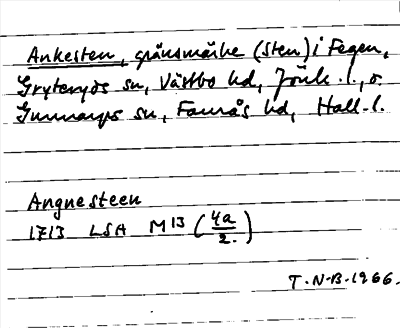 Ankesten, gränsmärke (sten) i Fegen,
Gryteryds sn, Västbo hd, Jönk. l., o.
Gunnarps sn, Faurås hd, Hall. l.
Angnesteen
1713 LSA M13 (4a/2.)
T.N-B. 1966.